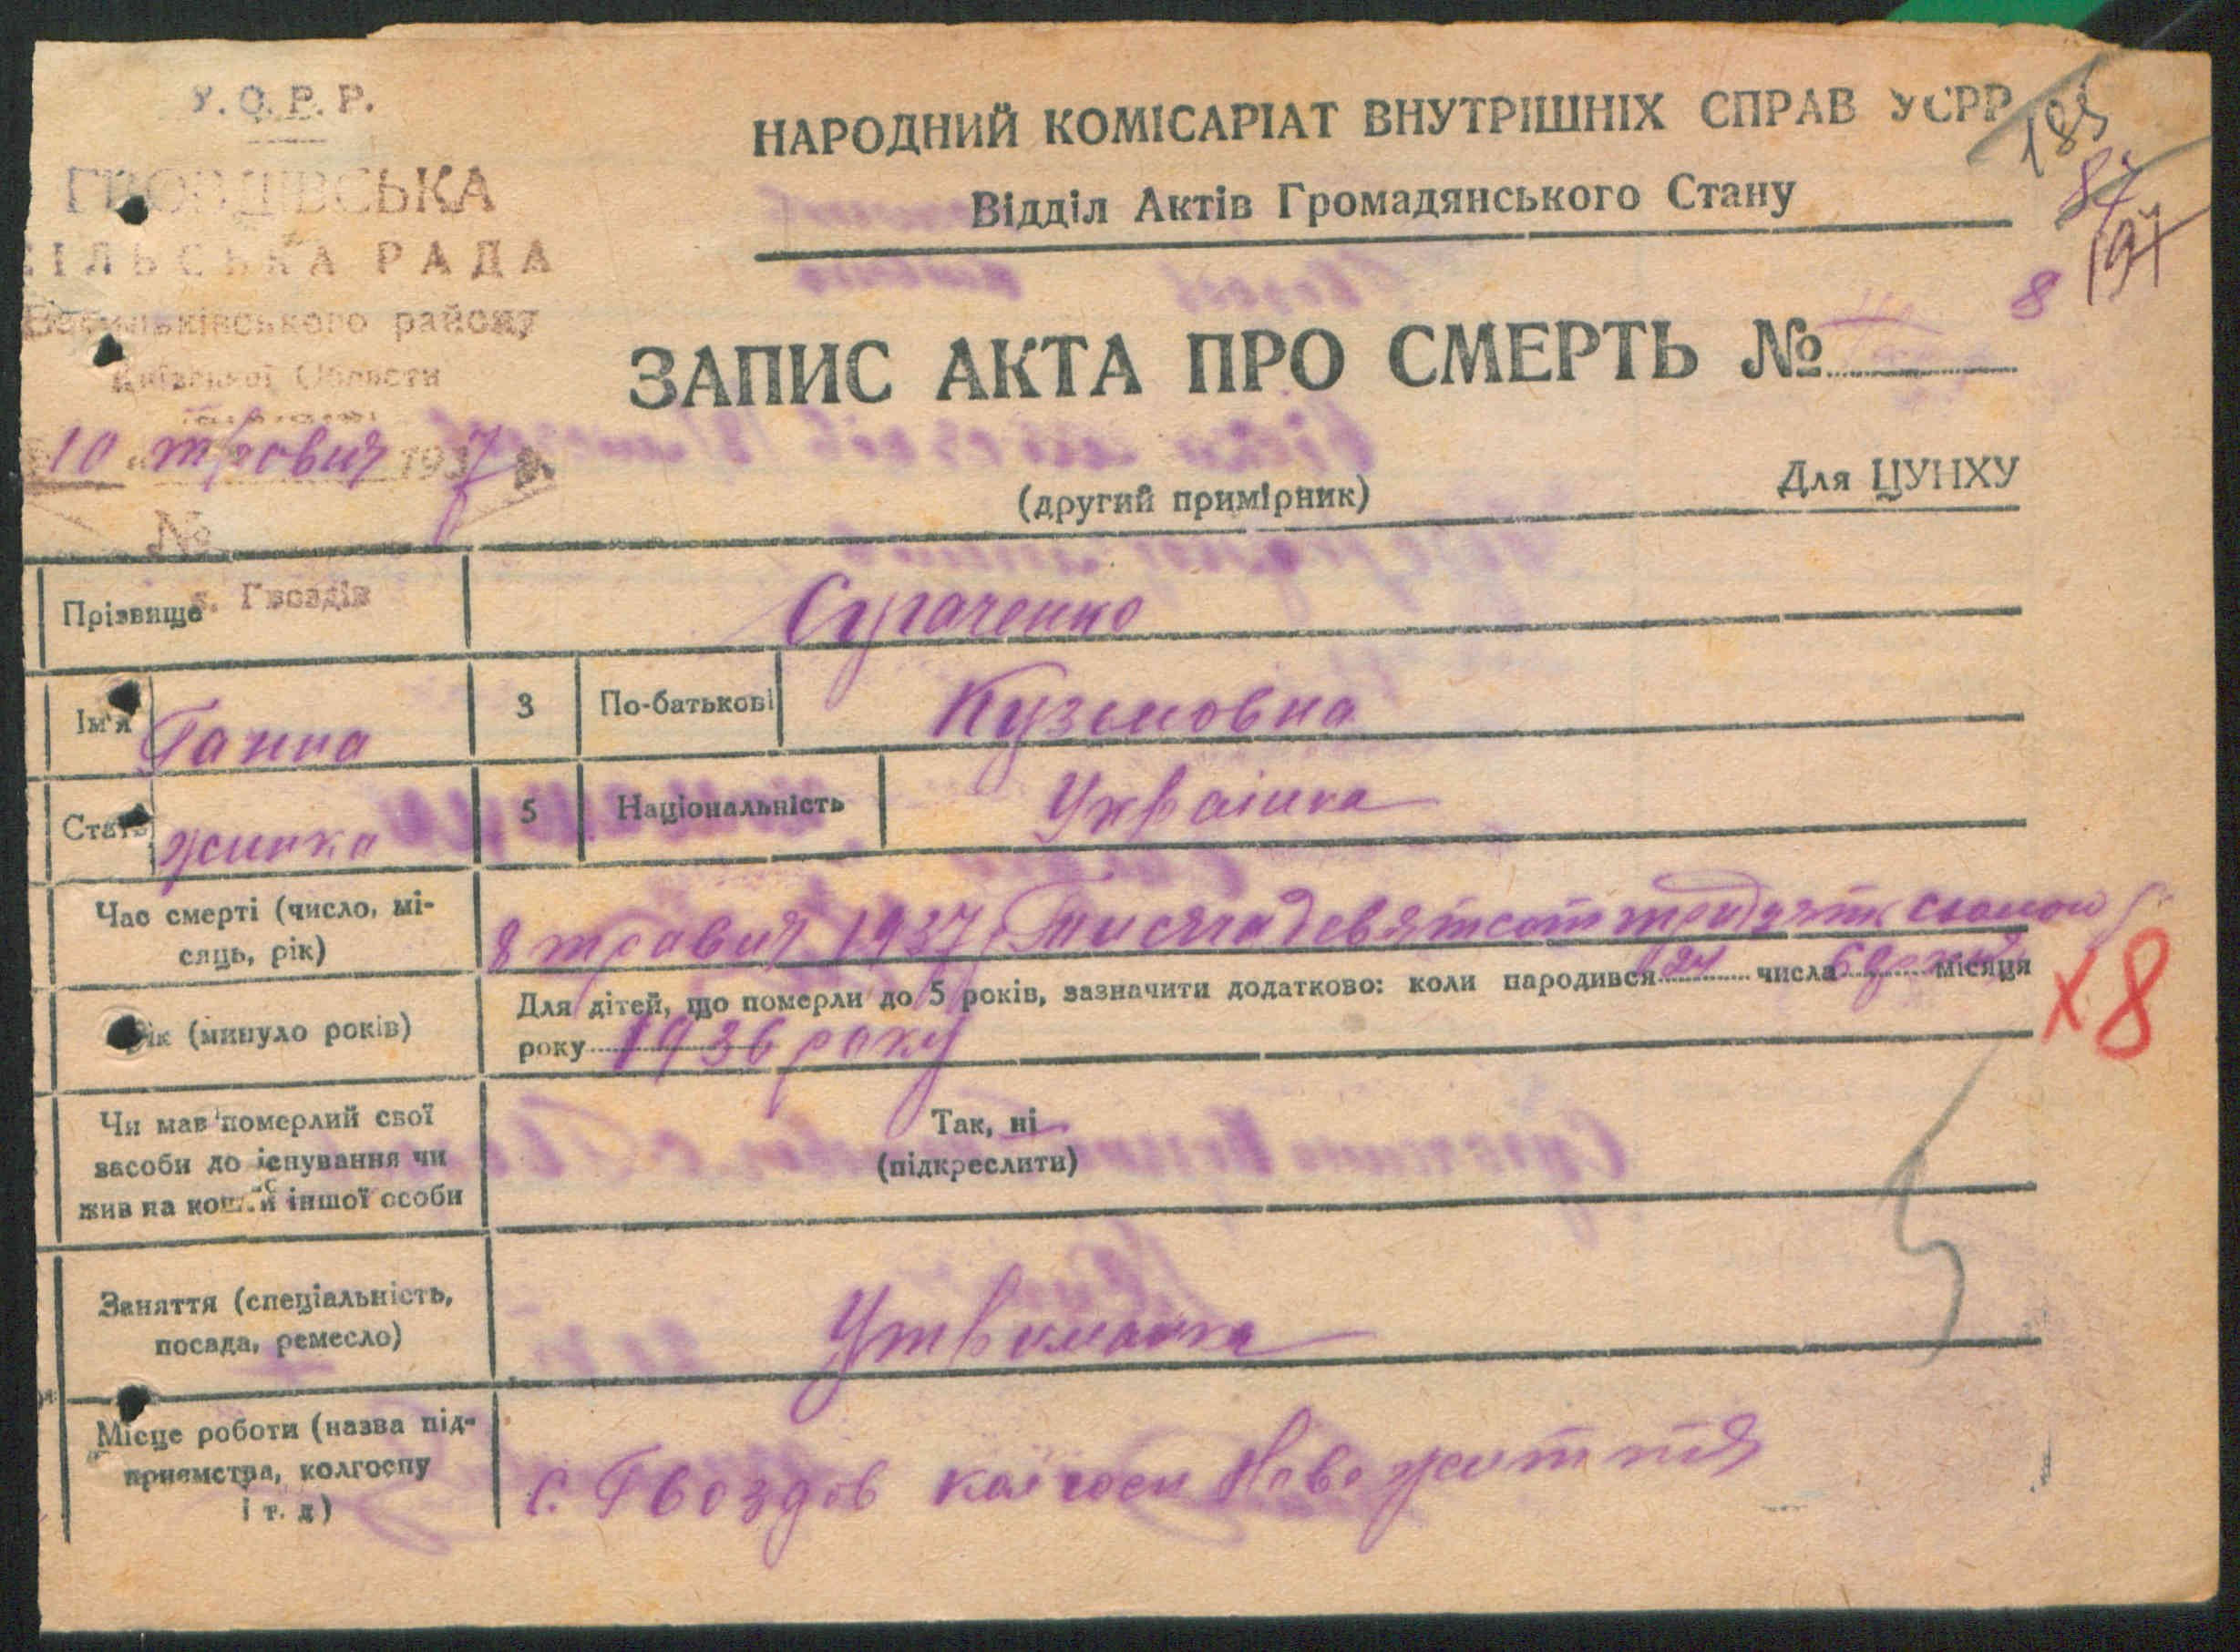 У.С.Р.Р.
ГВОЗДІВСЬКА
СІЛЬСЬКА РАДА
Васильківського району
Київської Области
10 травня 1937 р.
№
с. Гвоздів
НАРОДНИЙ КОМІСАРІАТ ВНУТРІШНІХ СПРАВ УСРР
Відділ Актів Громадянського Стану
185
87
197
ЗАПИС АКТА ПРО СМЕРТЬ № 8
(другий примірник)
Для ЦУНХУ
Прізвище Сугаченко
Ім'я Ганна 3 По-батькові Кузьмовна
Стать жинка 5 Національність Украінка
Час смерті (число, мі-
сяць, рік)
8 травня 1937 Тисяча девятсот тридцять сьомого р.
Рік (минуло років)
Для дітей, що померли до 5 років, зазначити додатково: коли народився 24 числа місяця
року 1936 року
х8
Чи мав померлий свої
засоби до існування чи
жив на кошти іншої особи
Так, ні
(підкреслити)
Заняття (спеціальність,
посада, ремесло)
Утриманка
Місце роботи (назва під-
приємства, колгоспу
і т. д)
с. Гвоздов колгосп Нове життя